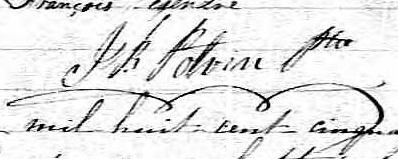 François Gendre
J B Potvin Ptre
mil huit cent cinqua